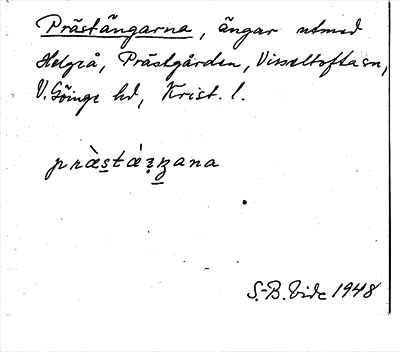 Prästängarna, ängar utmed
Helgeå, Prästgården, Visseltofta sn,
V. Göinge hd, Krist. l.
præ̀stæ̀ŋana
S.-B. Vide 1948